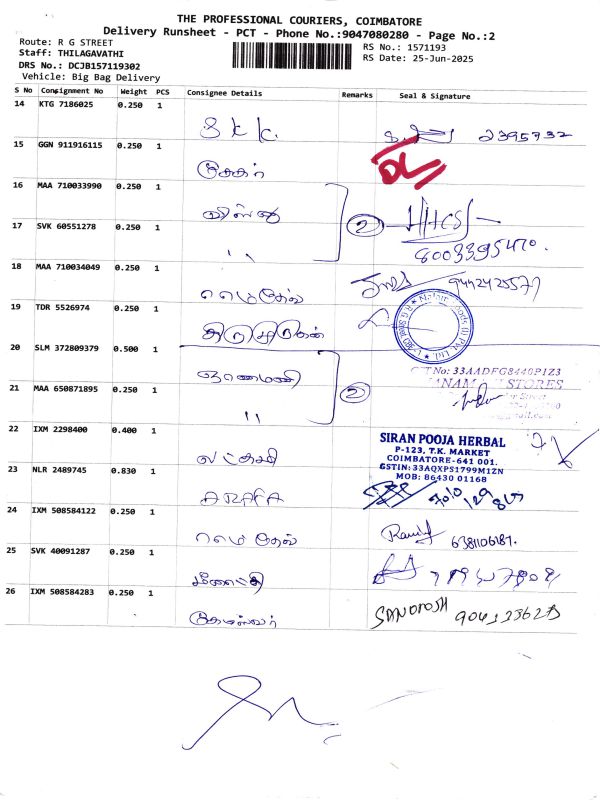 THE PROFESSIONAL COURIERS, COIMBATORE
Delivery Runsheet - PCT - Phone No.:9047080280 - Page No.:2
Route: R G STREET
RS No.: 1571193
Staff: THILAGAVATHI
RS Date: 25-Jun-2025
DRS No.: DCJB157119302
Vehicle: Big Bag Delivery
S No Consignment No Weight PCS Consignee Details Remarks Seal & Signature
14 KTG 7186025 0.250 1
S K C. 2395737
15 GGN 911916115 0.250 1
சேகர் DL
16 MAA 710033990 0.250 1
②
17 SVK 60551278 0.250 1
" 8003395470.
18 MAA 710034049 0.250 1
9442425577
19 TDR 5526974 0.250 1
20 SLM 372809379 0.500 1
ஞானமணி ②
No: 33AADFG8440P1Z3
STORES
21 MAA 650871895 0.250 1
"
22 IXM 2298400 0.400 1
லட்சுமி
SIRAN POOJA HERBAL
P-123, T.K. MARKET
COIMBATORE-641 001.
GSTIN: 33AQXPS1799M1ZN
MOB: 86430 01168
23 NLR 2489745 0.830 1
ARAFA 7010 129 865
24 IXM 508584122 0.250 1
6381106187.
25 SVK 40091287 0.250 1
26 IXM 508584283 0.250 1
SANTOSH